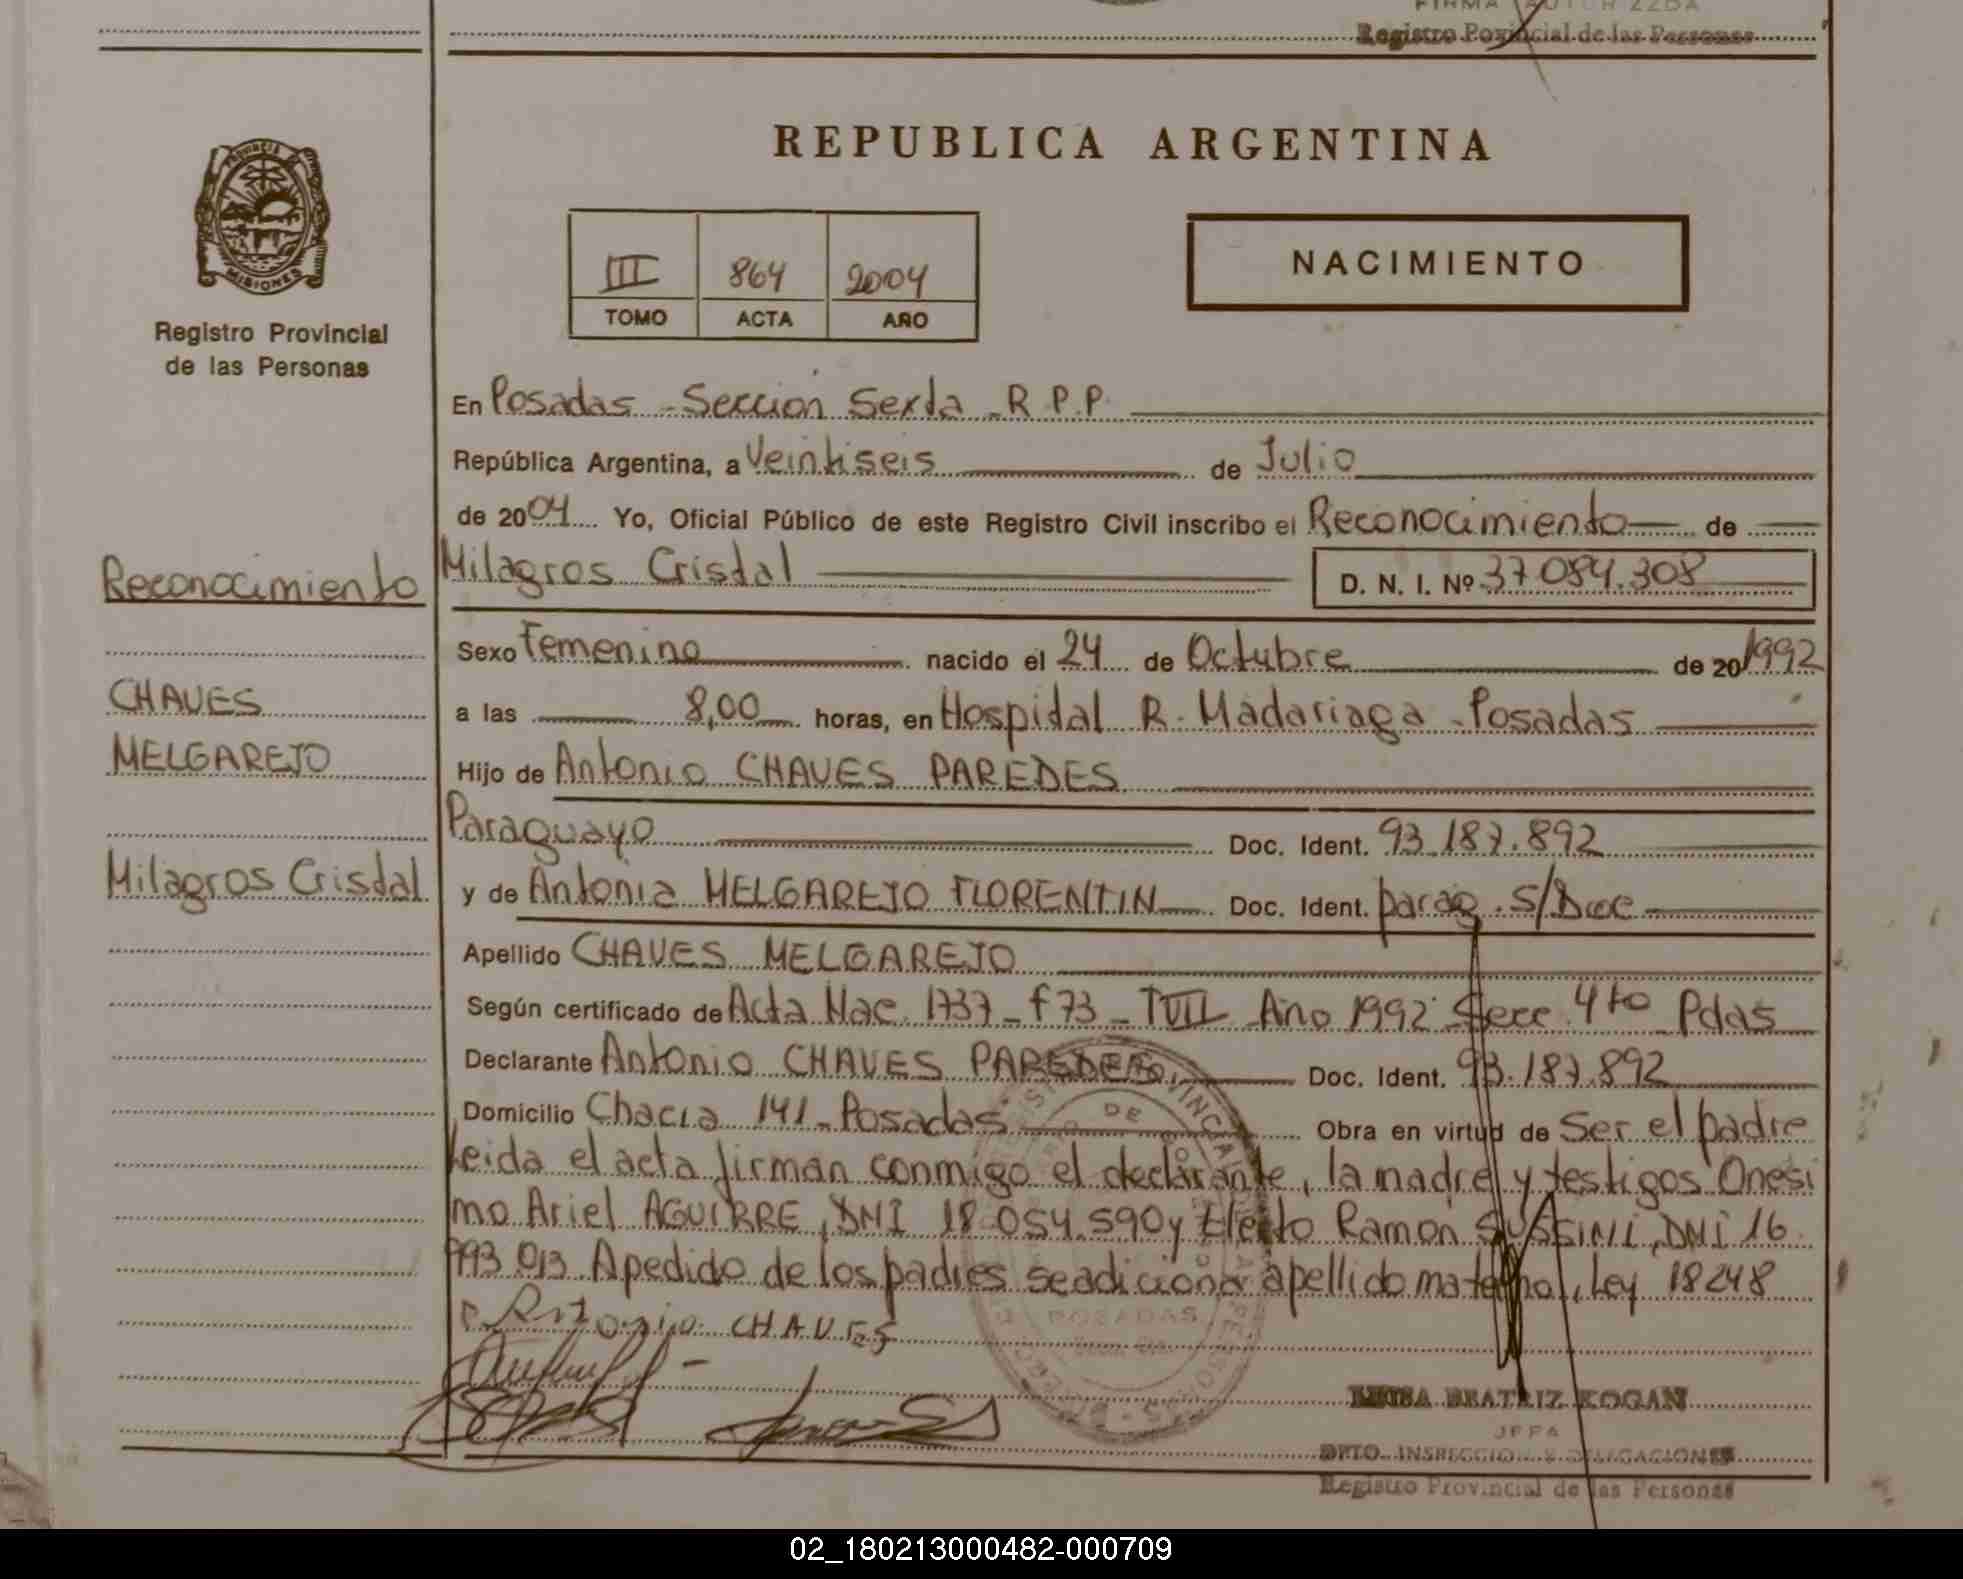 Registro Provincial de las Personas
REPUBLICA ARGENTINA
PROVINCIA DE
MISIONES
Registro Provincial
de las Personas
III 864 2004
TOMO ACTA AÑO
NACIMIENTO
En Posadas - Sección Sexta - R.P.P.
República Argentina, a Veintiseis de Julio
de 2004 Yo, Oficial Público de este Registro Civil inscribo el Reconocimiento de
Milagros Cristal D. N. I. Nº 37.084.308
Sexo Femenino nacido el 24 de Octubre de 20 1992
a las 8,00 horas, en Hospital R. Madariaga - Posadas
Hijo de Antonio CHAVES PAREDES
Paraguayo Doc. Ident. 93.187.892
y de Antonia MELGAREJO FLORENTIN Doc. Ident. parag. s/Doc
Apellido CHAVES MELGAREJO
Según certificado de Acta Nac. 1737 - f 73 - T VII Año 1992 Secc. 4to Pdas
Declarante Antonio CHAVES PAREDES Doc. Ident. 93.187.892
Domicilio Chacra 141 - Posadas Obra en virtud de Ser el padre
Leida el acta firman conmigo el declarante, la madre y testigos Onesi
mo Ariel AGUIRRE, DNI 18.054.590 y Ramon SUSSINI, DNI 16
993.013. Apedido de los padres se adicionar apellido materno, Ley 18248
Antonio CHAVES
Reconocimiento
CHAVES
MELGAREJO
Milagros Cristal
POSADAS
BEATRIZ KOGAN
JEFA
DPTO. INSPECCION Y DELEGACIONES
Registro Provincial de las Personas
02_180213000482-000709